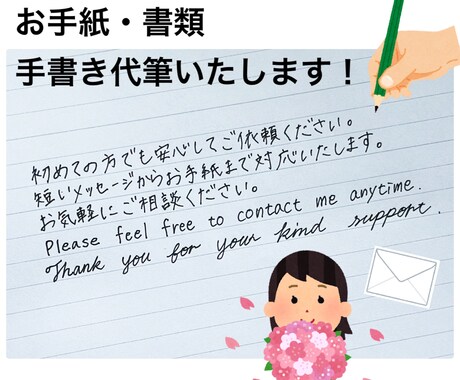 お手紙・書類
手書き代筆いたします！
初めての方でも安心してご依頼ください。
短いメッセージからお手紙まで対応いたします。
お気軽にご相談ください。
Please feel free to contact me anytime.
Thank you for your kind support.